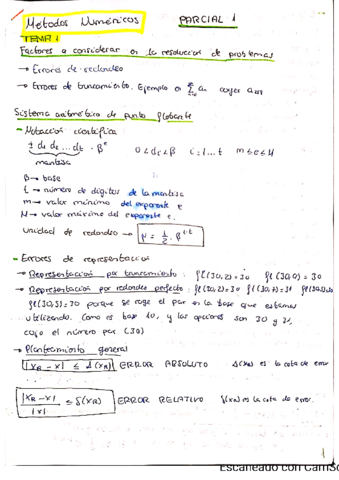 Métodos Numéricos PARCIAL 1
TEMA 1
Factores a considerar en la resolución de problemas
→ Errores de redondeo
→ Errores de truncamiento. Ejemplo
Sistema aritmético de punto flotante
- Notación científica
± d₁ d₂ ... dt · βᵉ 0 ≤ di < β i = 1...t m ≤ e ≤ M
mantisa
β → base
t → número de dígitos de la mantisa
m → valor mínimo del exponente e
M → valor máximo del exponente e.
Unidad de redondeo → μ = 1/2 · β¹⁻ᵗ
- Errores de representación
→ Representación por truncamiento: fl(30,2) = 30
→ Representación por redondeo perfecto: fl(30,2) = 30
fl(30,5) = 30 porque se coge el par en la base que estamos
utilizando. Como es base 10, y las opciones son 30 y
cojo el número par (30)
→ Planteamiento general
|x_R - x| ≤ Δ(x_R) ERROR ABSOLUTO Δ(x_R) es la cota de error
|x_R - x| / |x| ≤ δ(x_R) ERROR RELATIVO δ(x_R) es la cota de error.
1
Escaneado con CamSc